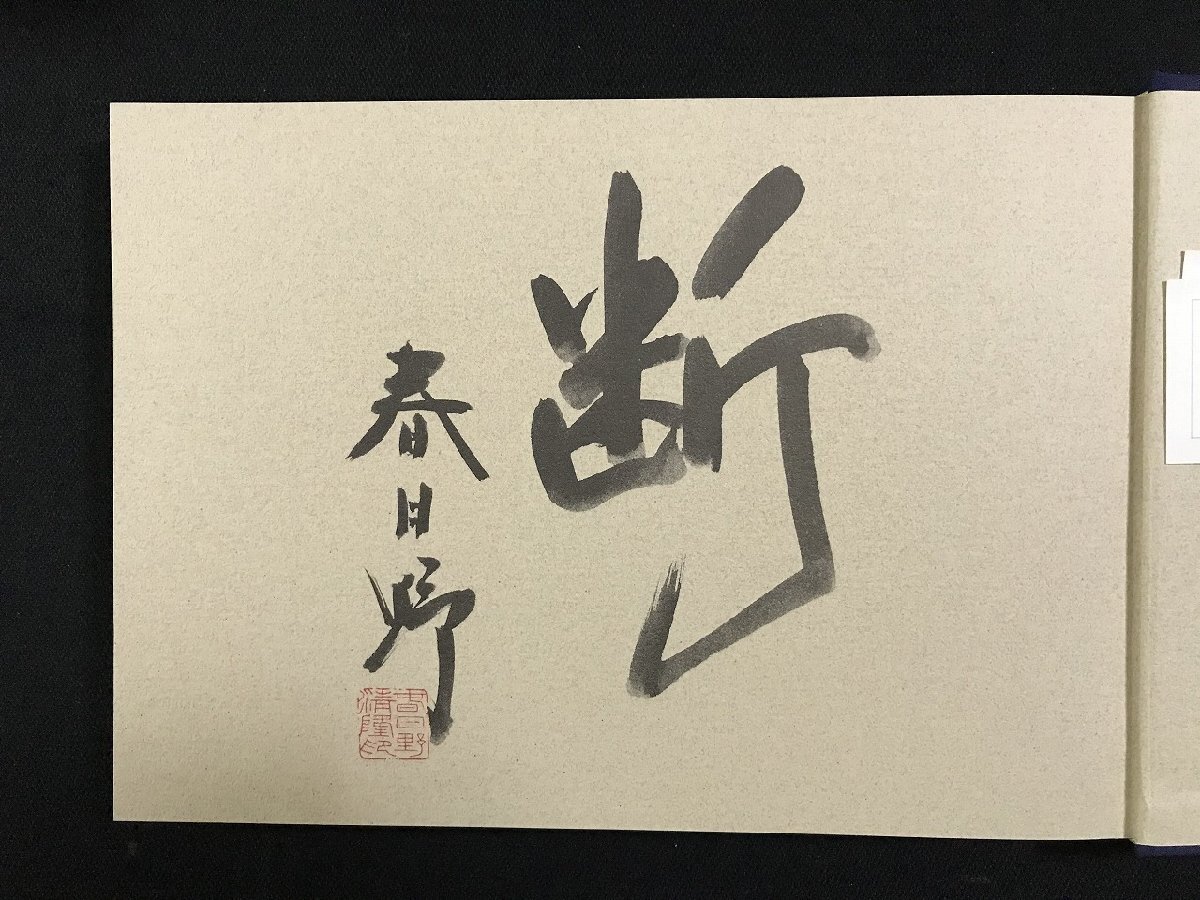 断
春日野
春日野
清隆印